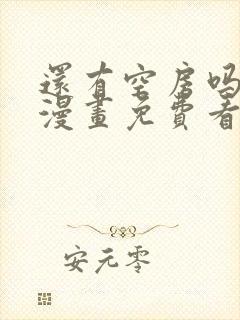 還有空房吗
漫畫免費看
安元零